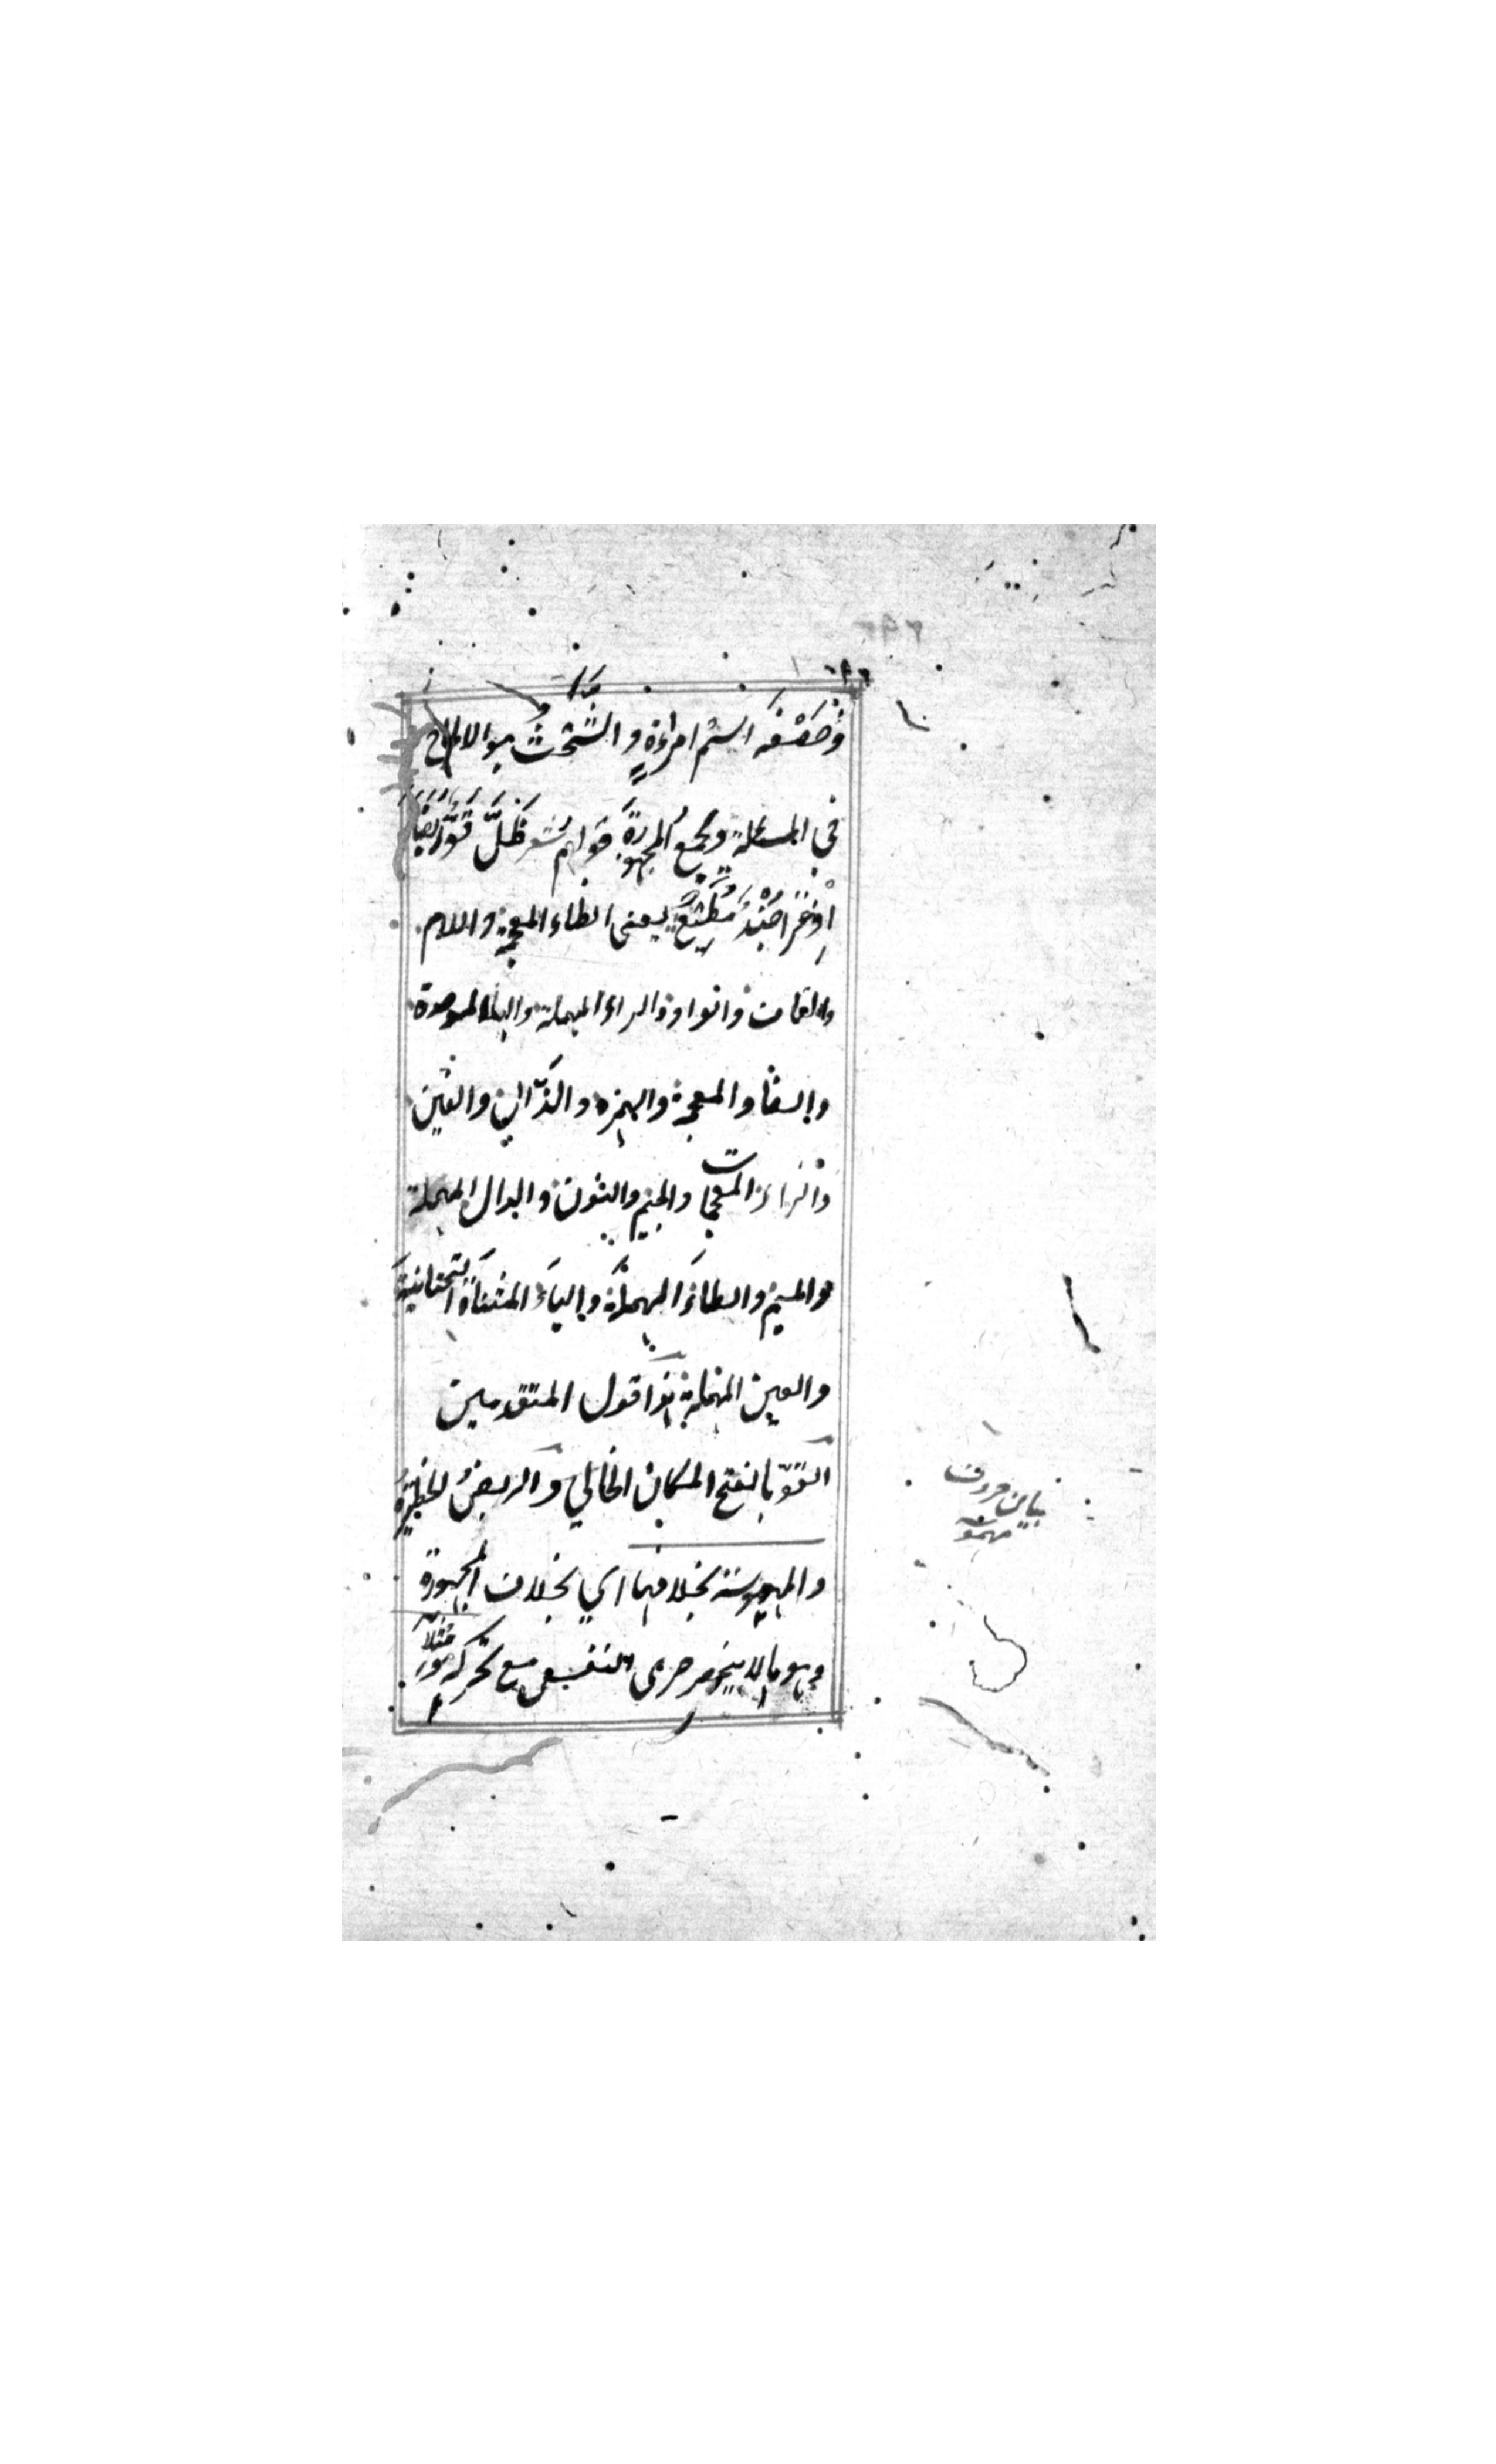 وخصفه اسم امراءة والشحث هو الالحاح
في المسئلة ويجمع المجهورة قولهم ظل قو ربض
اذ غزا جند مطيع يعنى الظاء المعجمة واللام
والقاف والواو والراء المهملة والباء الموحدة
والضاد المعجمة والهمزة والذال والغين
والزاء المعجمات والجيم والنون والدال المهملة
والميم والطاء المهملة والياء المثناة التحتانية
والعين المهملة هذا قول المتقدمين
القوّ بالفتح المكان الخالي والربض الحظيرة
والمهموسة بخلافها اي بخلاف المجهورة
وهو مالا ينحصر جرى النفس مع تحركه
بيان حروف
مهموسة